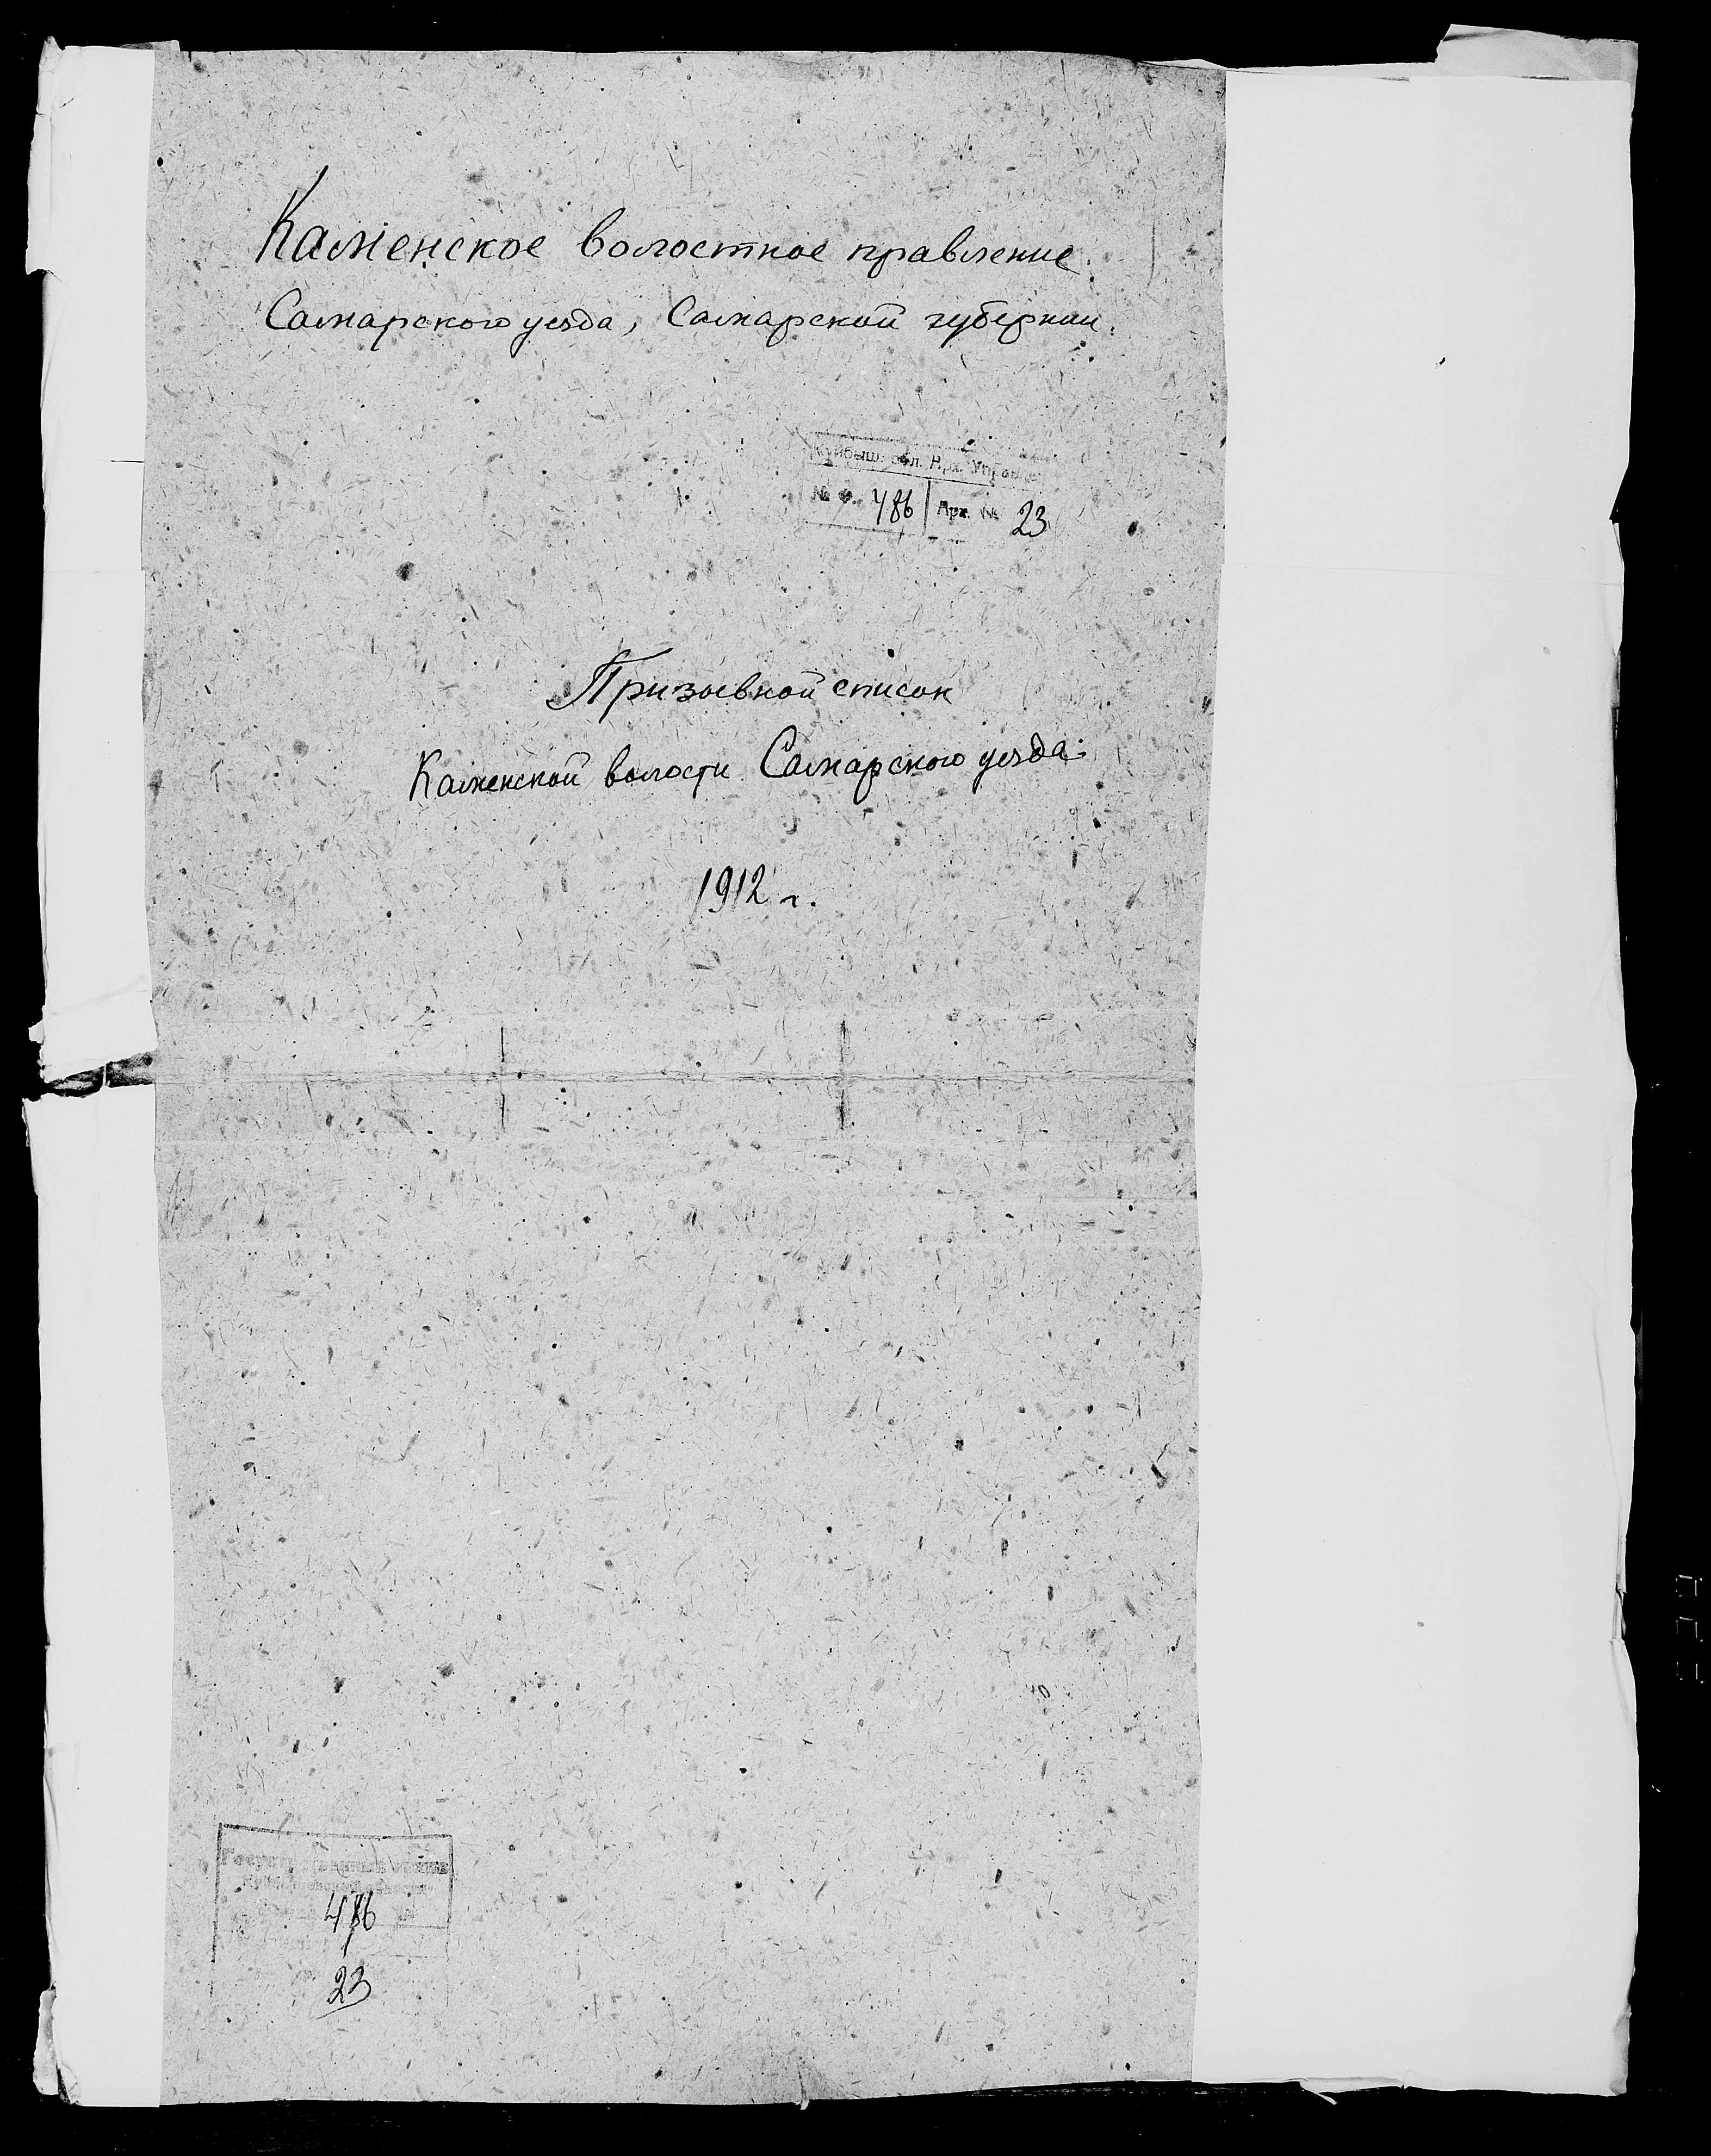 Каменское волостное правление
Самарского уезда, Самарской губернии.
Куйбыш. обл. Арх. Управ.
№ ф. 486 Арх. № 23
Призывной список
Каменской волости Самарского уезда.
1912 г.
486
23